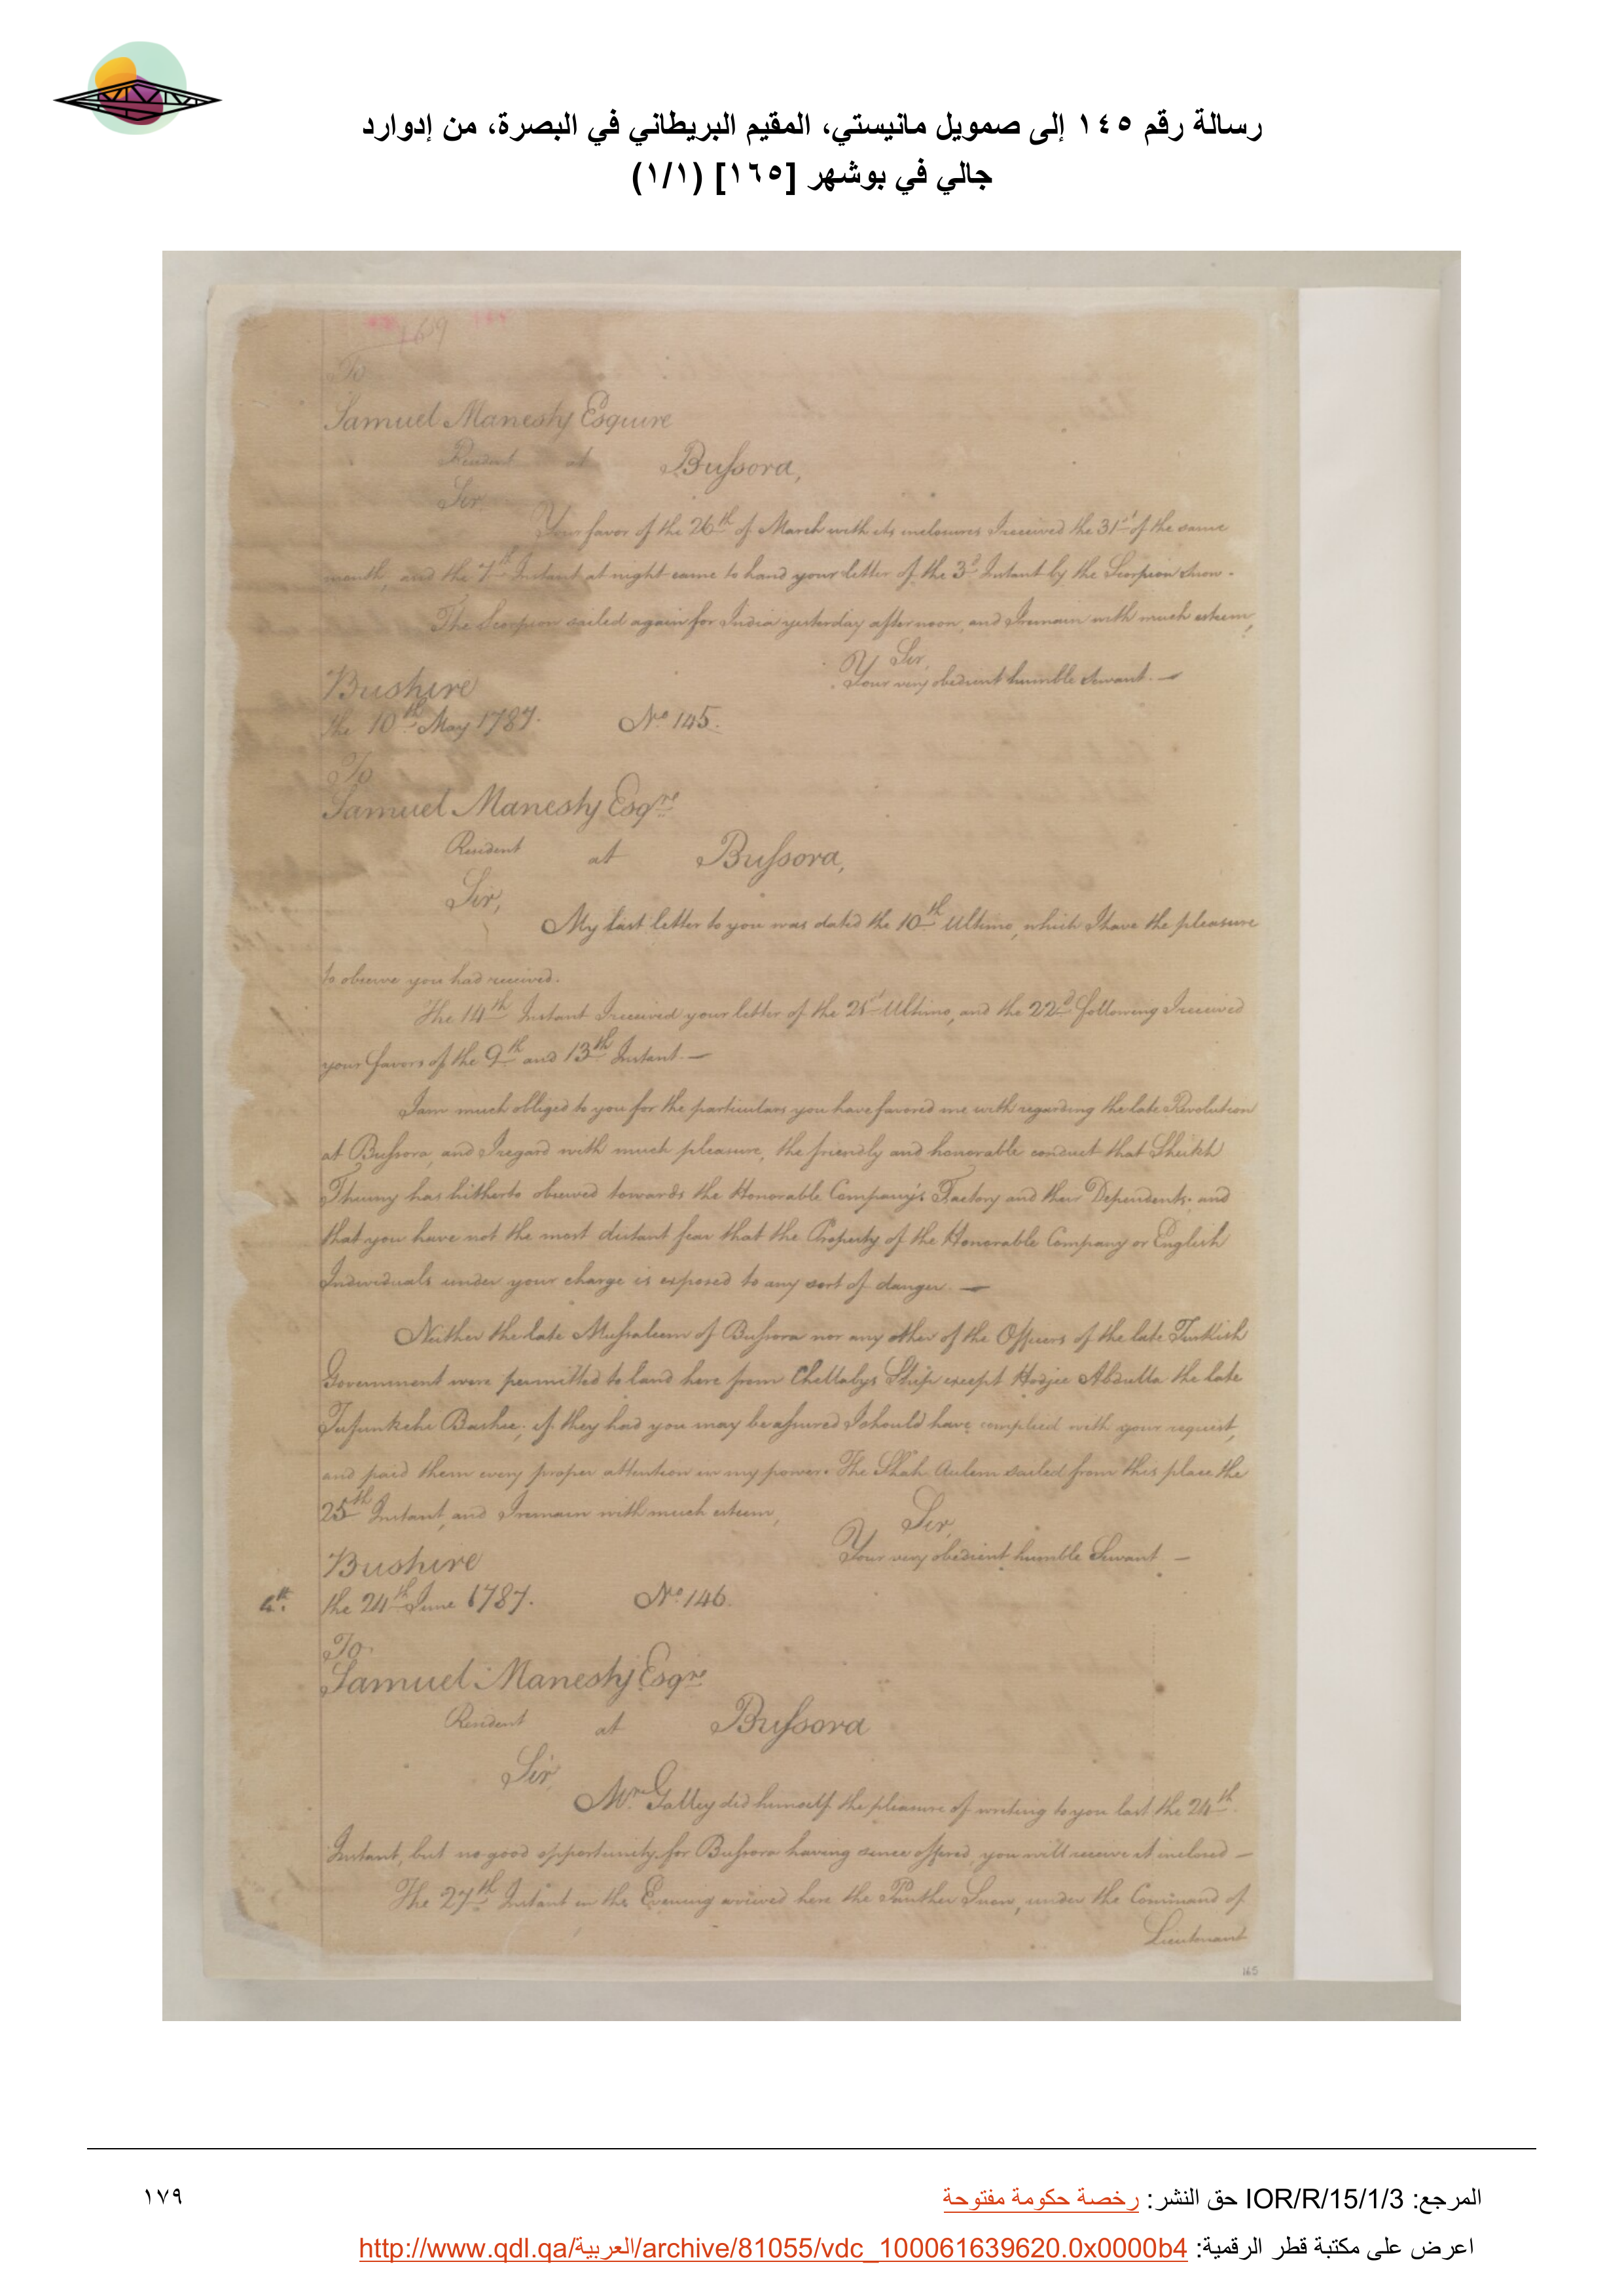 رسالة رقم ١٤٥ إلى صمويل مانيستي، المقيم البريطاني في البصرة، من إدوارد
جالي في بوشهر [١٦٥] (١/١)
169
To
Samuel Manesty Esquire
Resident at Bussora,
Sir
Your favor of the 26th of March with its inclosures I received the 31st of the same
month, and the 7th Instant at night came to hand your letter of the 3d Instant by the Scorpion Snow.
The Scorpion sailed again for India yesterday afternoon, and I remain with much esteem,
Sir,
Your very obedient humble Servant. —
Bushire
the 10th May 1787. No. 145.
To
Samuel Manesty Esqre
Resident at Bussora,
Sir,
My last letter to you was dated the 10th Ultimo, which I have the pleasure
to observe you had received.
The 14th Instant I received your letter of the 21st Ultimo, and the 22d following I received
your favors of the 9th and 13th Instant. —
I am much obliged to you for the particulars you have favored me with regarding the late Revolution
at Bussora, and I regard with much pleasure, the friendly and honorable conduct that Sheikh
Thuiny has hitherto observed towards the Honorable Company's Factory and their Dependents. and
that you have not the most distant fear that the Property of the Honorable Company or English
Individuals under your charge is exposed to any sort of danger. —
Neither the late Mussaleem of Bussora nor any other of the Officers of the late Turkish
Government were permitted to land here from Chellabys Ship except Hodjee Abdulla the late
Tufunkchi Bashee; if they had you may be assured I should have complied with your request,
and paid them every proper attention in my power. The Shah Aulem sailed from this place the
25th Instant, and I remain with much esteem,
Sir,
Your very obedient humble Servant —
Bushire
4th. the 24th June 1787. No. 146.
To.
Samuel Manesty Esqre
Resident at Bussora
Sir
Mr. Galley did himself the pleasure of writing to you last the 24th
Instant, but no good opportunity for Bussora having since offered, you will receive it inclosed —
The 27th Instant in the Evening arrived here the Panther Snow, under the Command of
Lieutenant
165
المرجع: IOR/R/15/1/3 حق النشر: رخصة حكومة مفتوحة
١٧٩
اعرض على مكتبة قطر الرقمية: http://www.qdl.qa/العربية/archive/81055/vdc_100061639620.0x0000b4